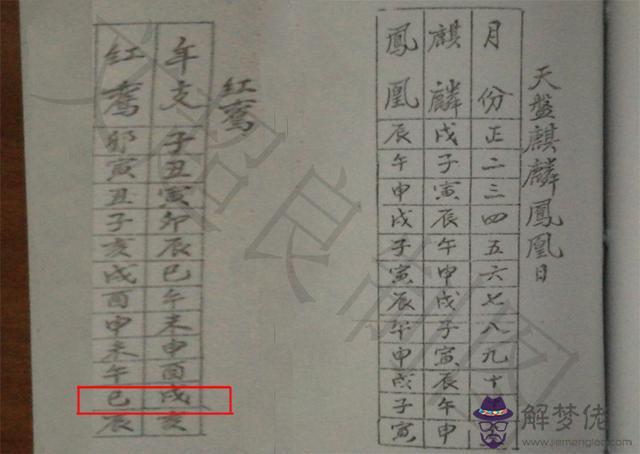 天盤麒麟鳳凰日
月份 正 二 三 四 五 六 七 八 九 十
麒麟 戌 子 寅 辰 午 申 戌 子 寅 辰 午 申
鳳凰 辰 午 申 戌 子 寅 辰 午 申 戌 子 寅
红鸾
年支 子 丑 寅 卯 辰 巳 午 未 申 酉 戌 亥
红鸾 卯 寅 丑 子 亥 戌 酉 申 未 午 巳 辰
解梦佬
www.jiemenglao.com